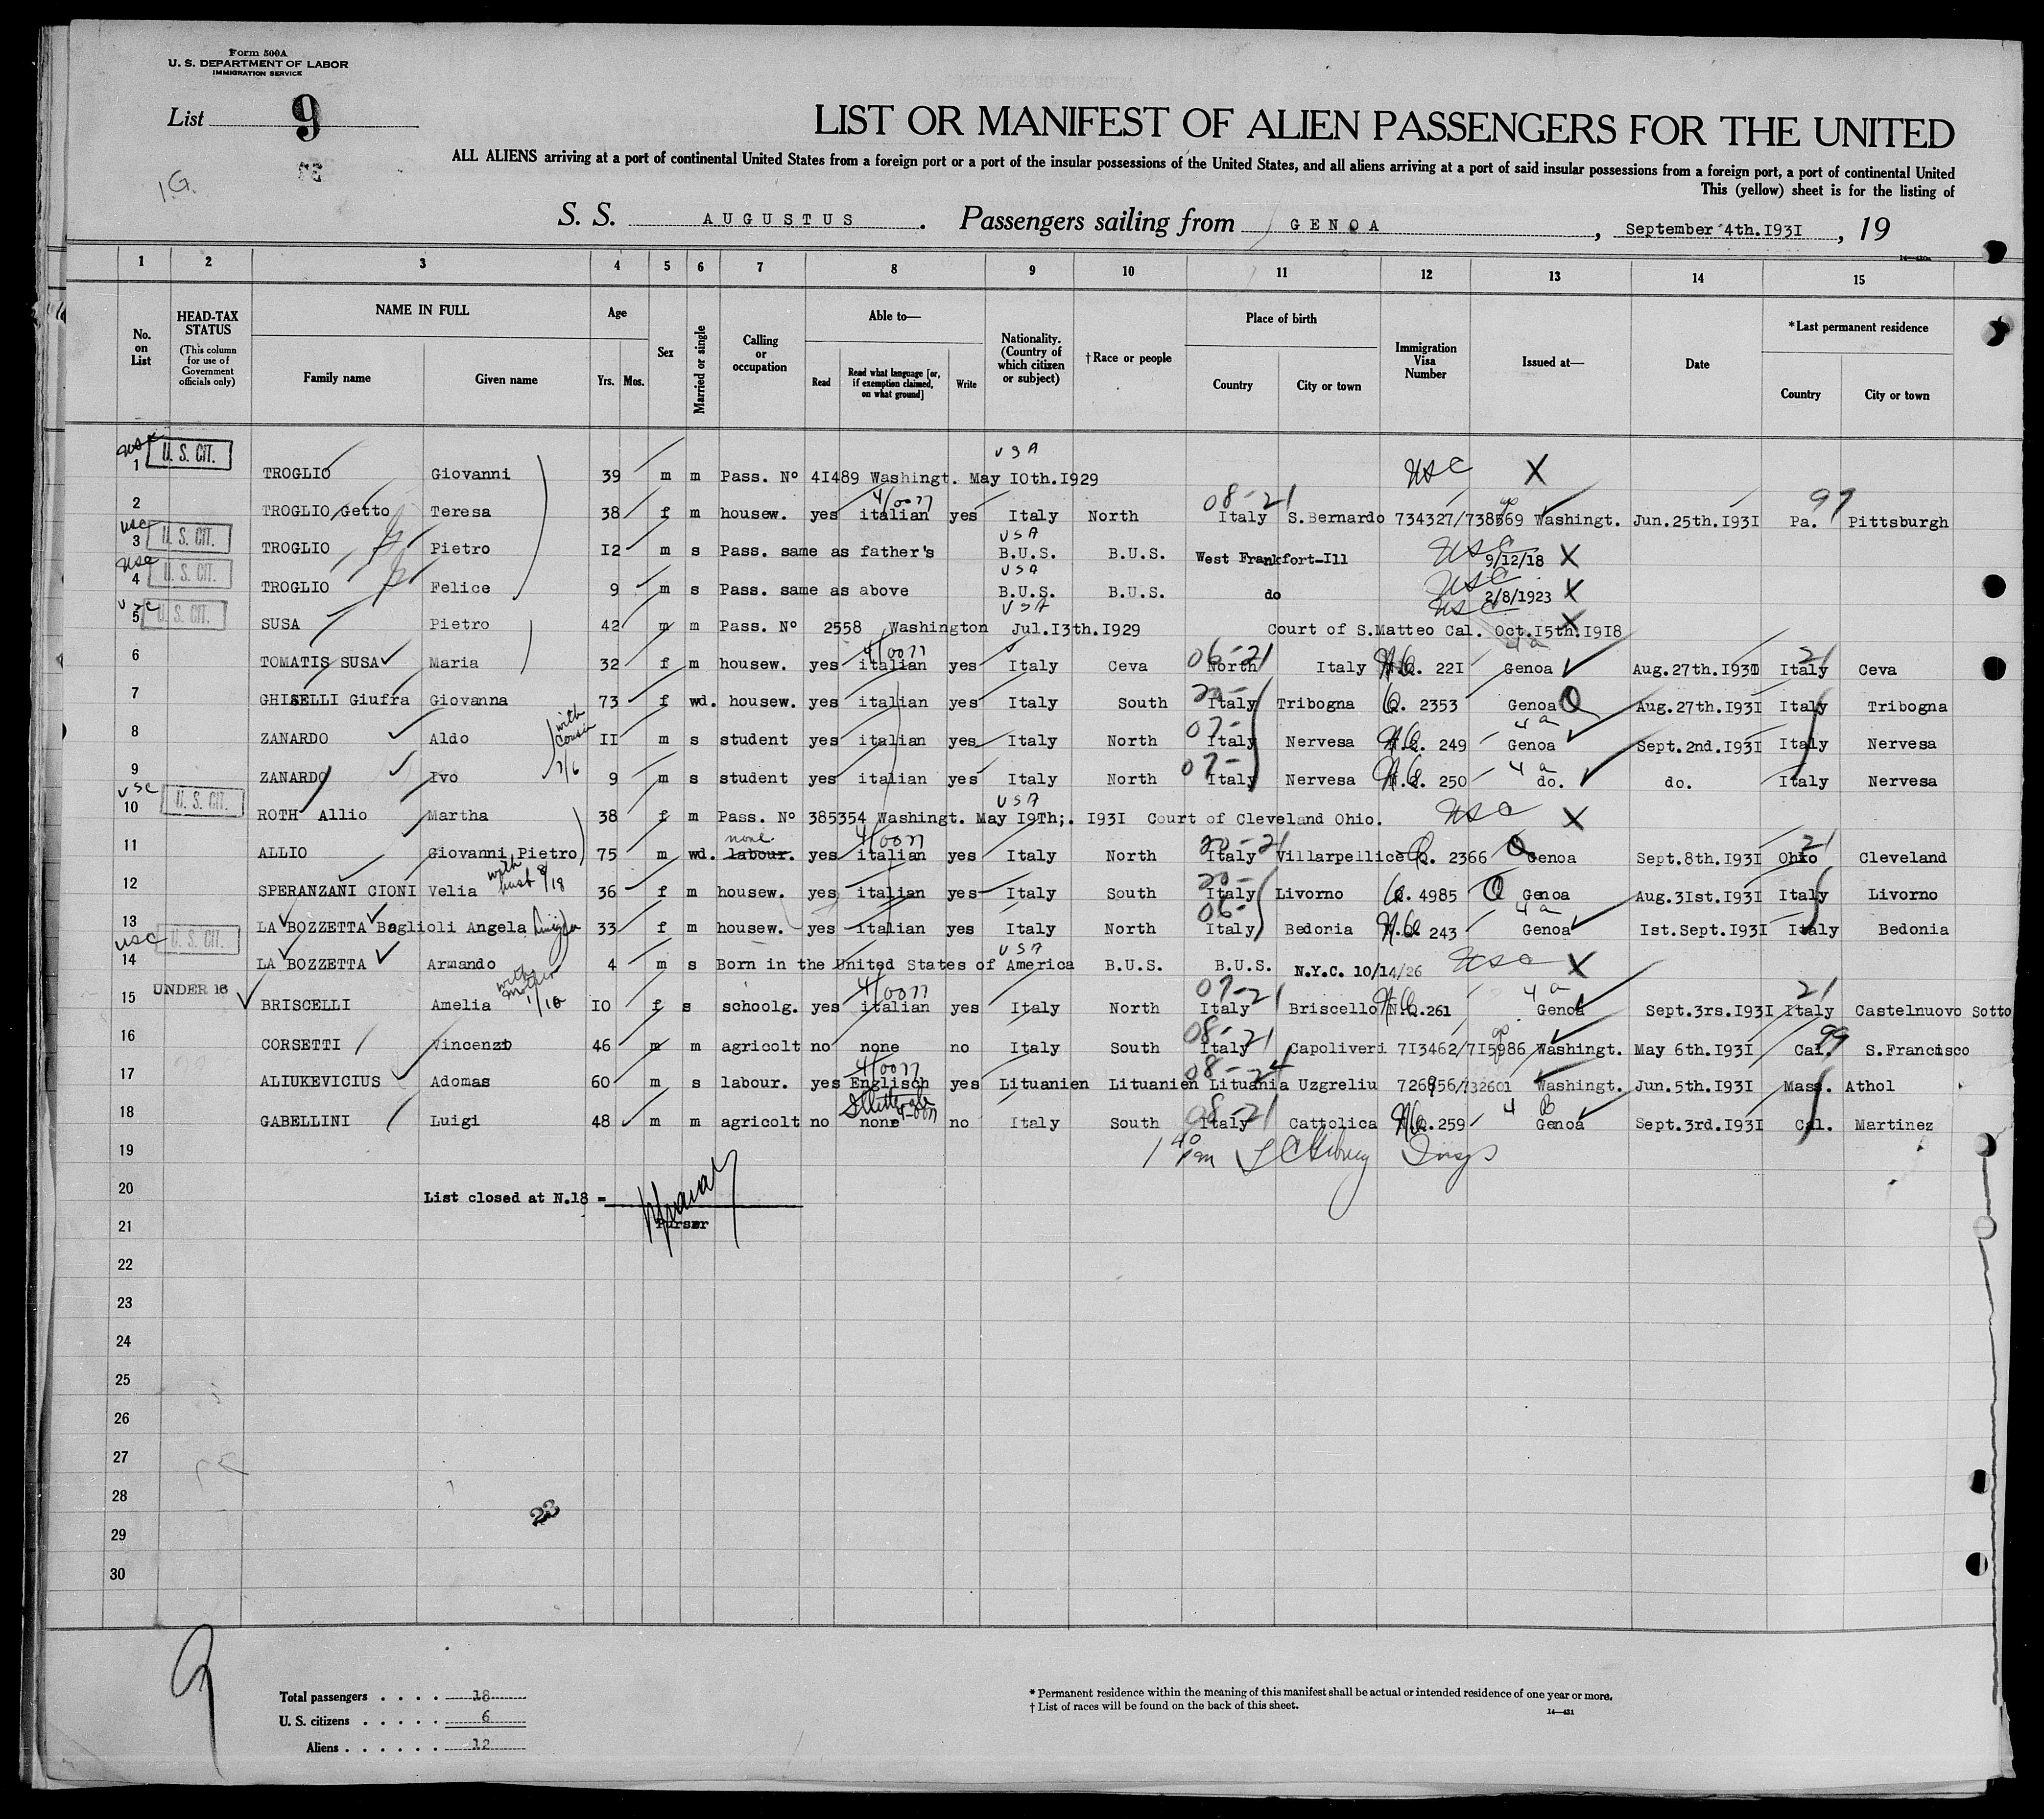 Form 500A
U. S. DEPARTMENT OF LABOR
IMMIGRATION SERVICE
List 9
I.G.
LIST OR MANIFEST OF ALIEN PASSENGERS FOR THE UNITED
ALL ALIENS arriving at a port of continental United States from a foreign port or a port of the insular possessions of the United States, and all aliens arriving at a port of said insular possessions from a foreign port, a port of continental United
This (yellow) sheet is for the listing of
S. S. AUGUSTUS. Passengers sailing from GENOA, September 4th.I93I, 19
1 2 3 4 5 6 7 8 9 10 11 12 13 14 15
No. on List
HEAD-TAX STATUS (This column for use of Government officials only)
NAME IN FULL Family name Given name
Age Yrs. Mos.
Sex
Married or single
Calling or occupation
Able to— Read Read what language [or, if exemption claimed, on what ground] Write
Nationality. (Country of which citizen or subject)
†Race or people
Place of birth Country City or town
Immigration Visa Number
Issued at—
Date
*Last permanent residence Country City or town
usc U. S. CIT. USA
1 TROGLIO Giovanni 39 m m Pass. Nº 4I489 Washingt. May I0th.I929 USC X
2 TROGLIO Getto Teresa 38 f m housew. yes italian yes Italy North 08-21 Italy S.Bernardo 734327/738569 Washingt. Jun.25th.I93I Pa. Pittsburgh
usc U. S. CIT. USA
3 TROGLIO Pietro I2 m s Pass. same as father's B.U.S. B.U.S. West Frankfort-Ill USC 9/12/18 X
usc U. S. CIT. USA
4 TROGLIO Felice 9 m s Pass. same as above B.U.S. B.U.S. do USC 2/8/1923 X
usc U. S. CIT. USA
5 SUSA Pietro 42 m m Pass. Nº 2558 Washington Jul.I3th.I929 Court of S.Matteo Cal. Oct.I5th.I9I8 USC X
6 TOMATIS SUSA Maria 32 f m housew. yes italian yes Italy Ceva 06-21 North Italy 22I 4a Genoa Aug.27th.I93I 21 Italy Ceva
7 GHISELLI Giufra Giovanna 73 f wd. housew. yes italian yes Italy South Italy Tribogna Q. 2353 Genoa Aug.27th.I93I Italy Tribogna
8 ZANARDO Aldo with cousin 7/6 II m s student yes italian yes Italy North 07- Italy Nervesa 249 4a Genoa Sept.2nd.I93I Italy Nervesa
9 ZANARDO Ivo 9 m s student yes italian yes Italy North 07- Italy Nervesa 250 4a do. do. Italy Nervesa
usc U. S. CIT. USA
10 ROTH Allio Martha 38 f m Pass. Nº 385354 Washingt. May I9Th;. I93I Court of Cleveland Ohio. USC X
11 ALLIO Giovanni Pietro 75 m wd. labour. none yes italian yes Italy North Italy 21 Villarpellice Q. 2366 Genoa Sept.8th.I93I Ohio 21 Cleveland
12 SPERANZANI CIONI Velia with husb 8/18 36 f m housew. yes italian yes Italy South 20- Italy Livorno Q. 4985 Genoa Aug.3Ist.I93I Italy Livorno
13 LA BOZZETTA Baglioli Angela 33 f m housew. yes Italian yes Italy North 06- Italy Bedonia 243 4a Genoa Ist.Sept.I93I Italy Bedonia
usc U. S. CIT. USA
14 LA BOZZETTA Armando 4 m s Born in the United States of America B.U.S. B.U.S. N.Y.C. 10/14/26 USC X
UNDER 16
15 BRISCELLI Amelia with mother I0 f s schoolg. yes italian yes Italy North 07-21 Italy Briscello N.Q.261 4a Genoa Sept.3rs.I93I 21 Italy Castelnuovo Sotto
16 CORSETTI Vincenzo 46 m m agricolt no none no Italy South 08-21 Italy Capoliveri 7I3462/7I5986 Washingt. May 6th.I93I 99 Cal. S.Francisco
17 ALIUKEVICIUS Adomas 60 m s labour. yes Englisch yes Lituanien Lituanien 08-24 Lituania Uzgreliu 726856/732601 Washingt. Jun.5th.I93I Mass. Athol
18 GABELLINI Luigi 48 m m agricolt no none no Italy South 08-21 Italy Cattolica 259 4 B Genoa Sept.3rd.I93I Cal. Martinez
19
20 List closed at N.18 =
21 Purser
22
23
24
25
26
27
28
23
29
30
9
Total passengers . . . . 18
U. S. citizens . . . . . 6
Aliens . . . . . . 12
* Permanent residence within the meaning of this manifest shall be actual or intended residence of one year or more.
† List of races will be found on the back of this sheet.
14—421